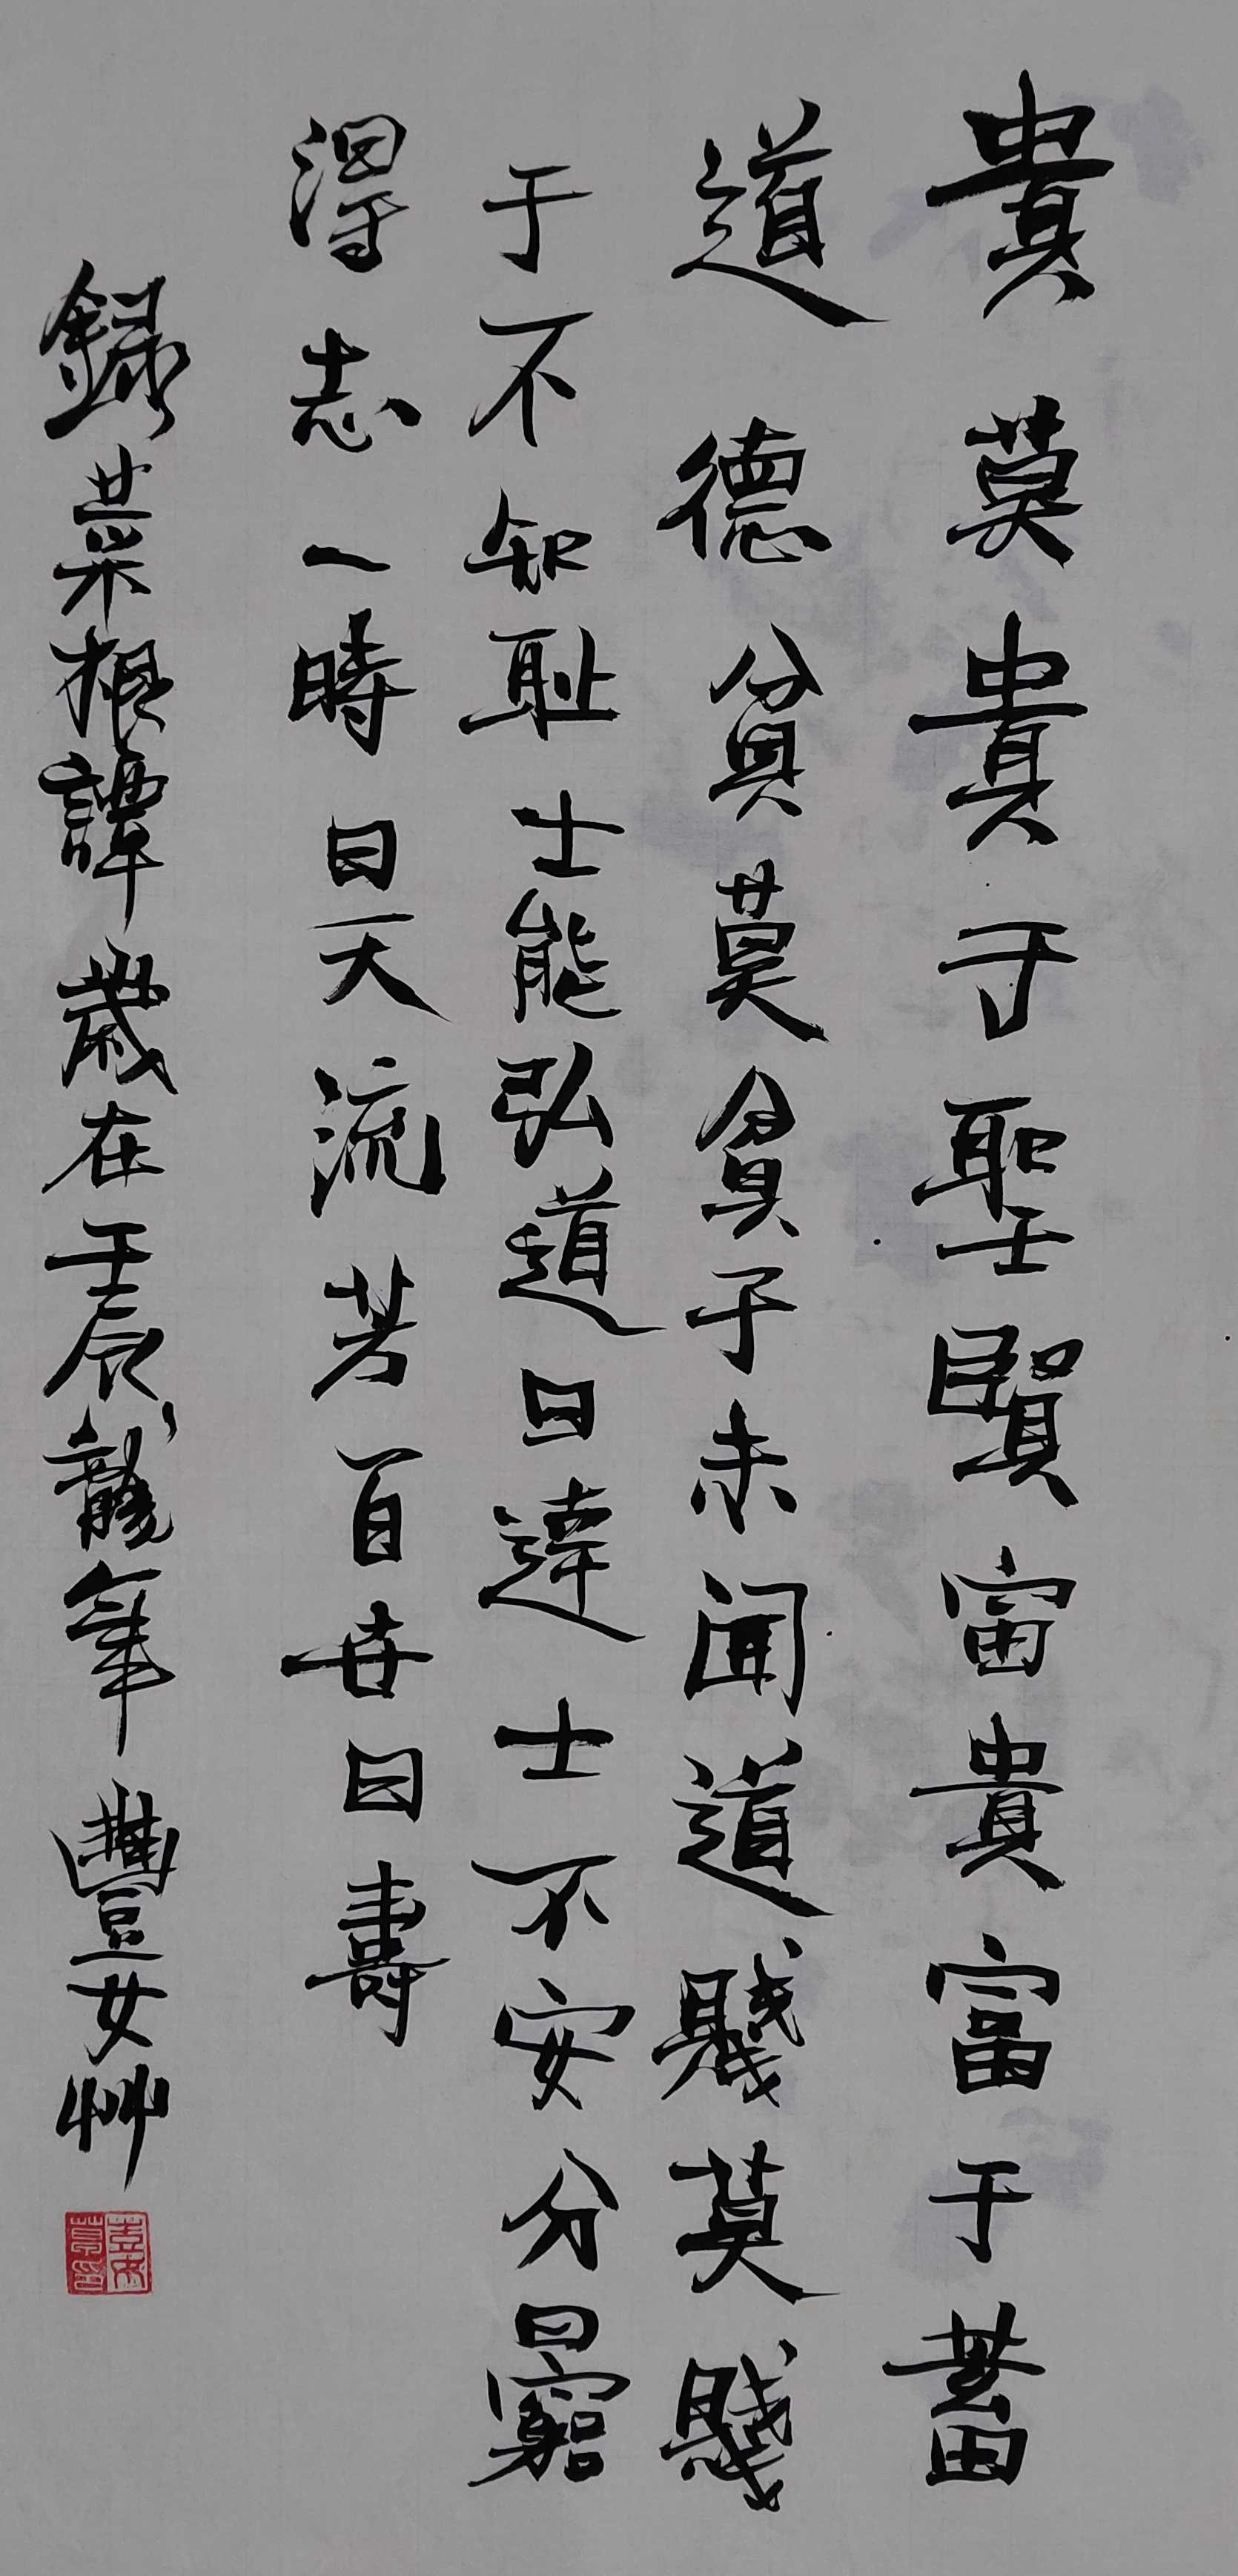 貴莫貴于聖賢富貴富于蓄
道德貧莫貧于未聞道賤莫賤
于不知恥士能弘道曰達士不安分曰窮
得志一時曰夭流芳百世曰壽
錄菜根譚歲在壬辰龍年豐女艸